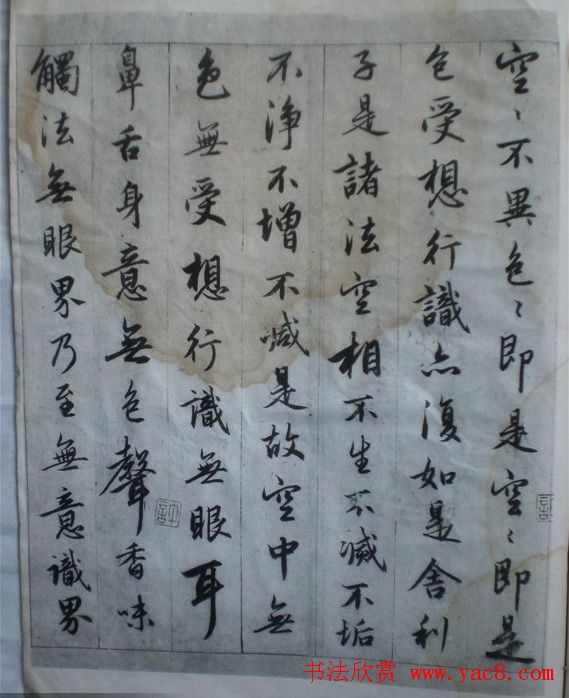 空〻不異色〻即是空〻即是
色受想行識亦復如是舍利
子是諸法空相不生不滅不垢
不淨不增不減是故空中無
色無受想行識無眼耳
鼻舌身意無色聲香味
觸法無眼界乃至無意識界
书法欣赏 www.yac8.com